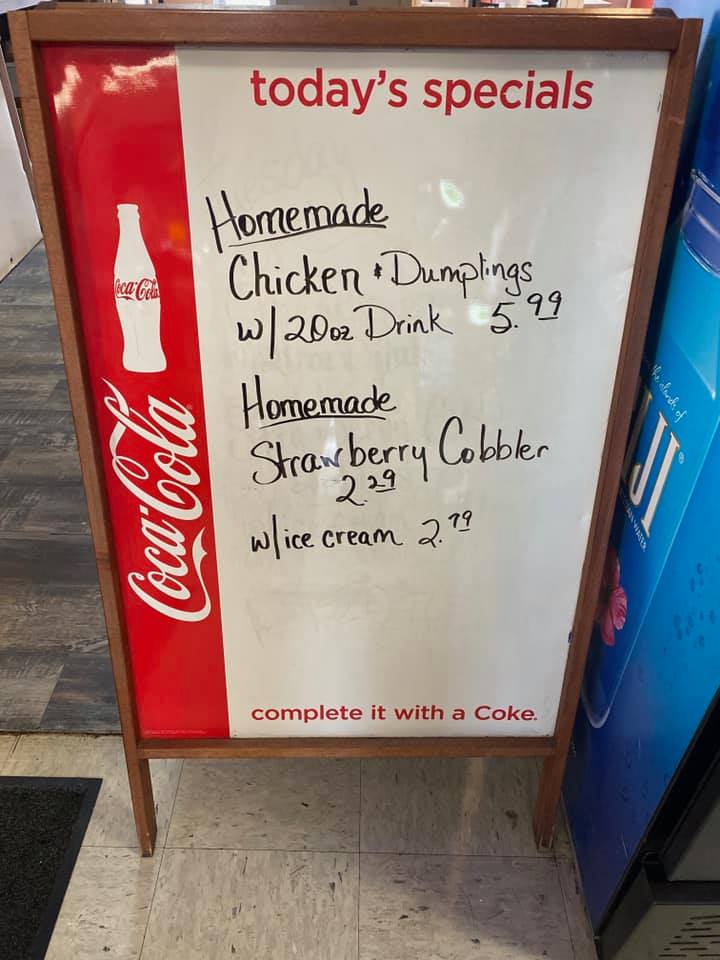 today's specials
Homemade
Chicken & Dumplings
w/20oz Drink 5.99
Homemade
Strawberry Cobbler
2.29
w/ice cream 2.79
complete it with a Coke.
Coca-Cola
Coca-Cola
the islands of
WATER